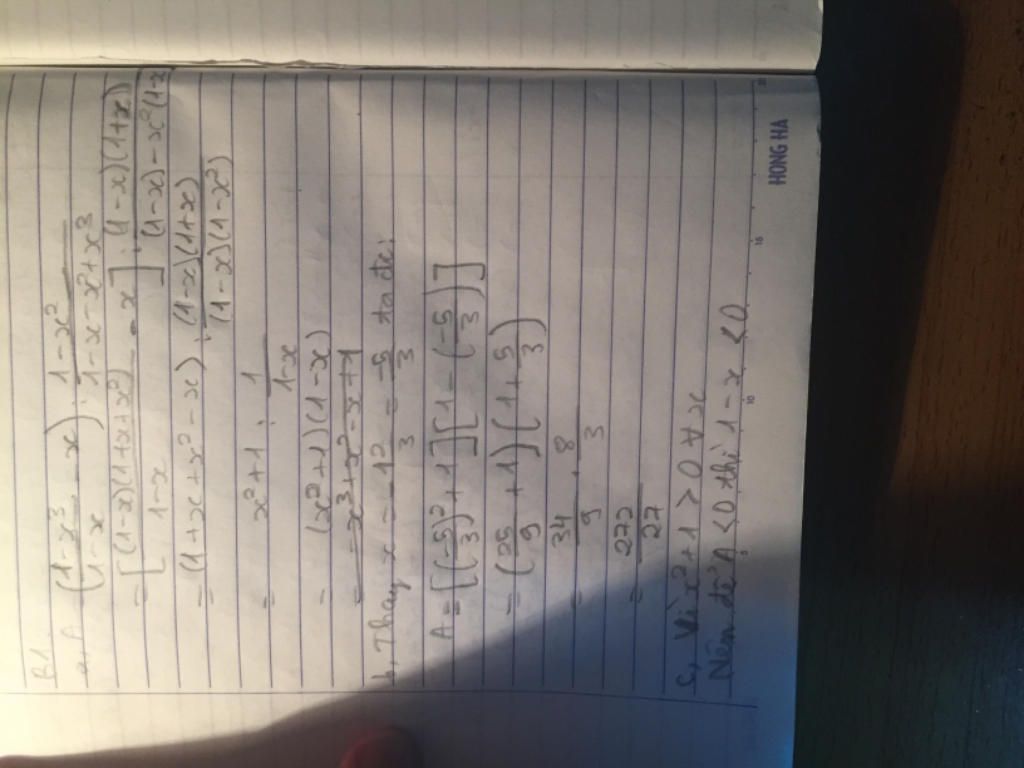 B1.
a, A = (1-x³/1-x - x) : 1-x²/1-x-x²+x³
= [(1-x)(1+x+x²)/1-x - x] : (1-x)(1+x)/(1-x)-x²(1-x
= (1+x+x²-x) : (1-x)(1+x)/(1-x)(1-x²)
= x²+1 : 1/1-x
= (x²+1)(1-x)
= -x³+x²-x+1
b, Thay x = -1 2/3 = -5/3 ta đc:
A = [(-5/3)²+1][1-(-5/3)]
= (25/9+1)(1+5/3)
= 34/9 . 8/3
= 272/27
c, Vì x²+1 > 0 ∀x
Nên để A <0 thì 1-x <0
5 10 15 20
HONG HA